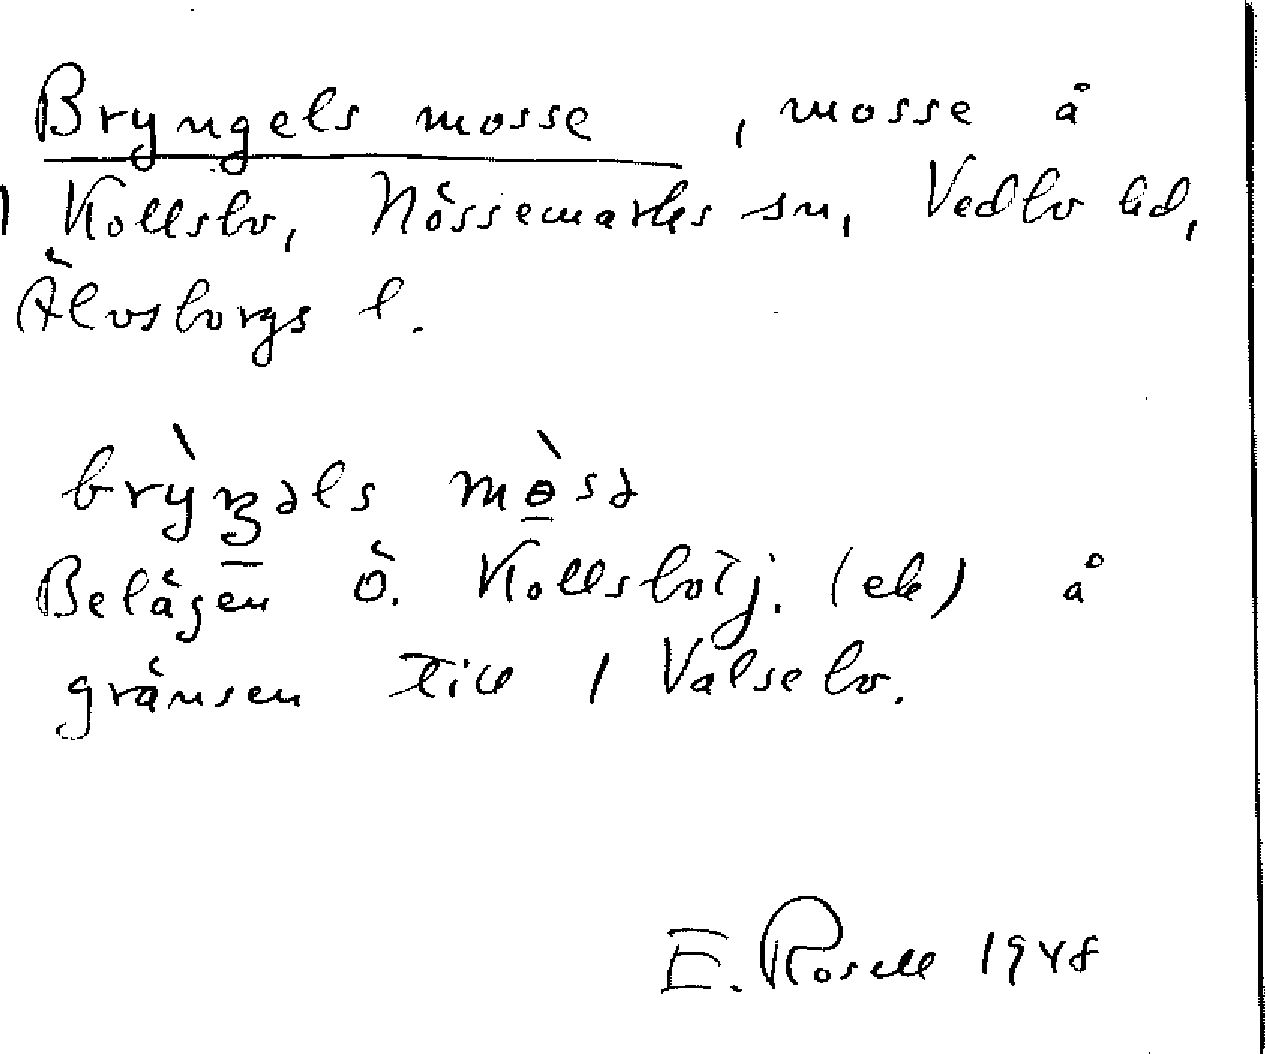 Bryngels mosse, mosse å
1 Kollsbo, Nössemarks sn, Vedbo hd,
Älvsborgs l.
bry̆̀ŋəls mòsə
Belägen ö. Kollsbotj. (ek) å
gränsen till 1 Valsebo.
E. Rosell 1948